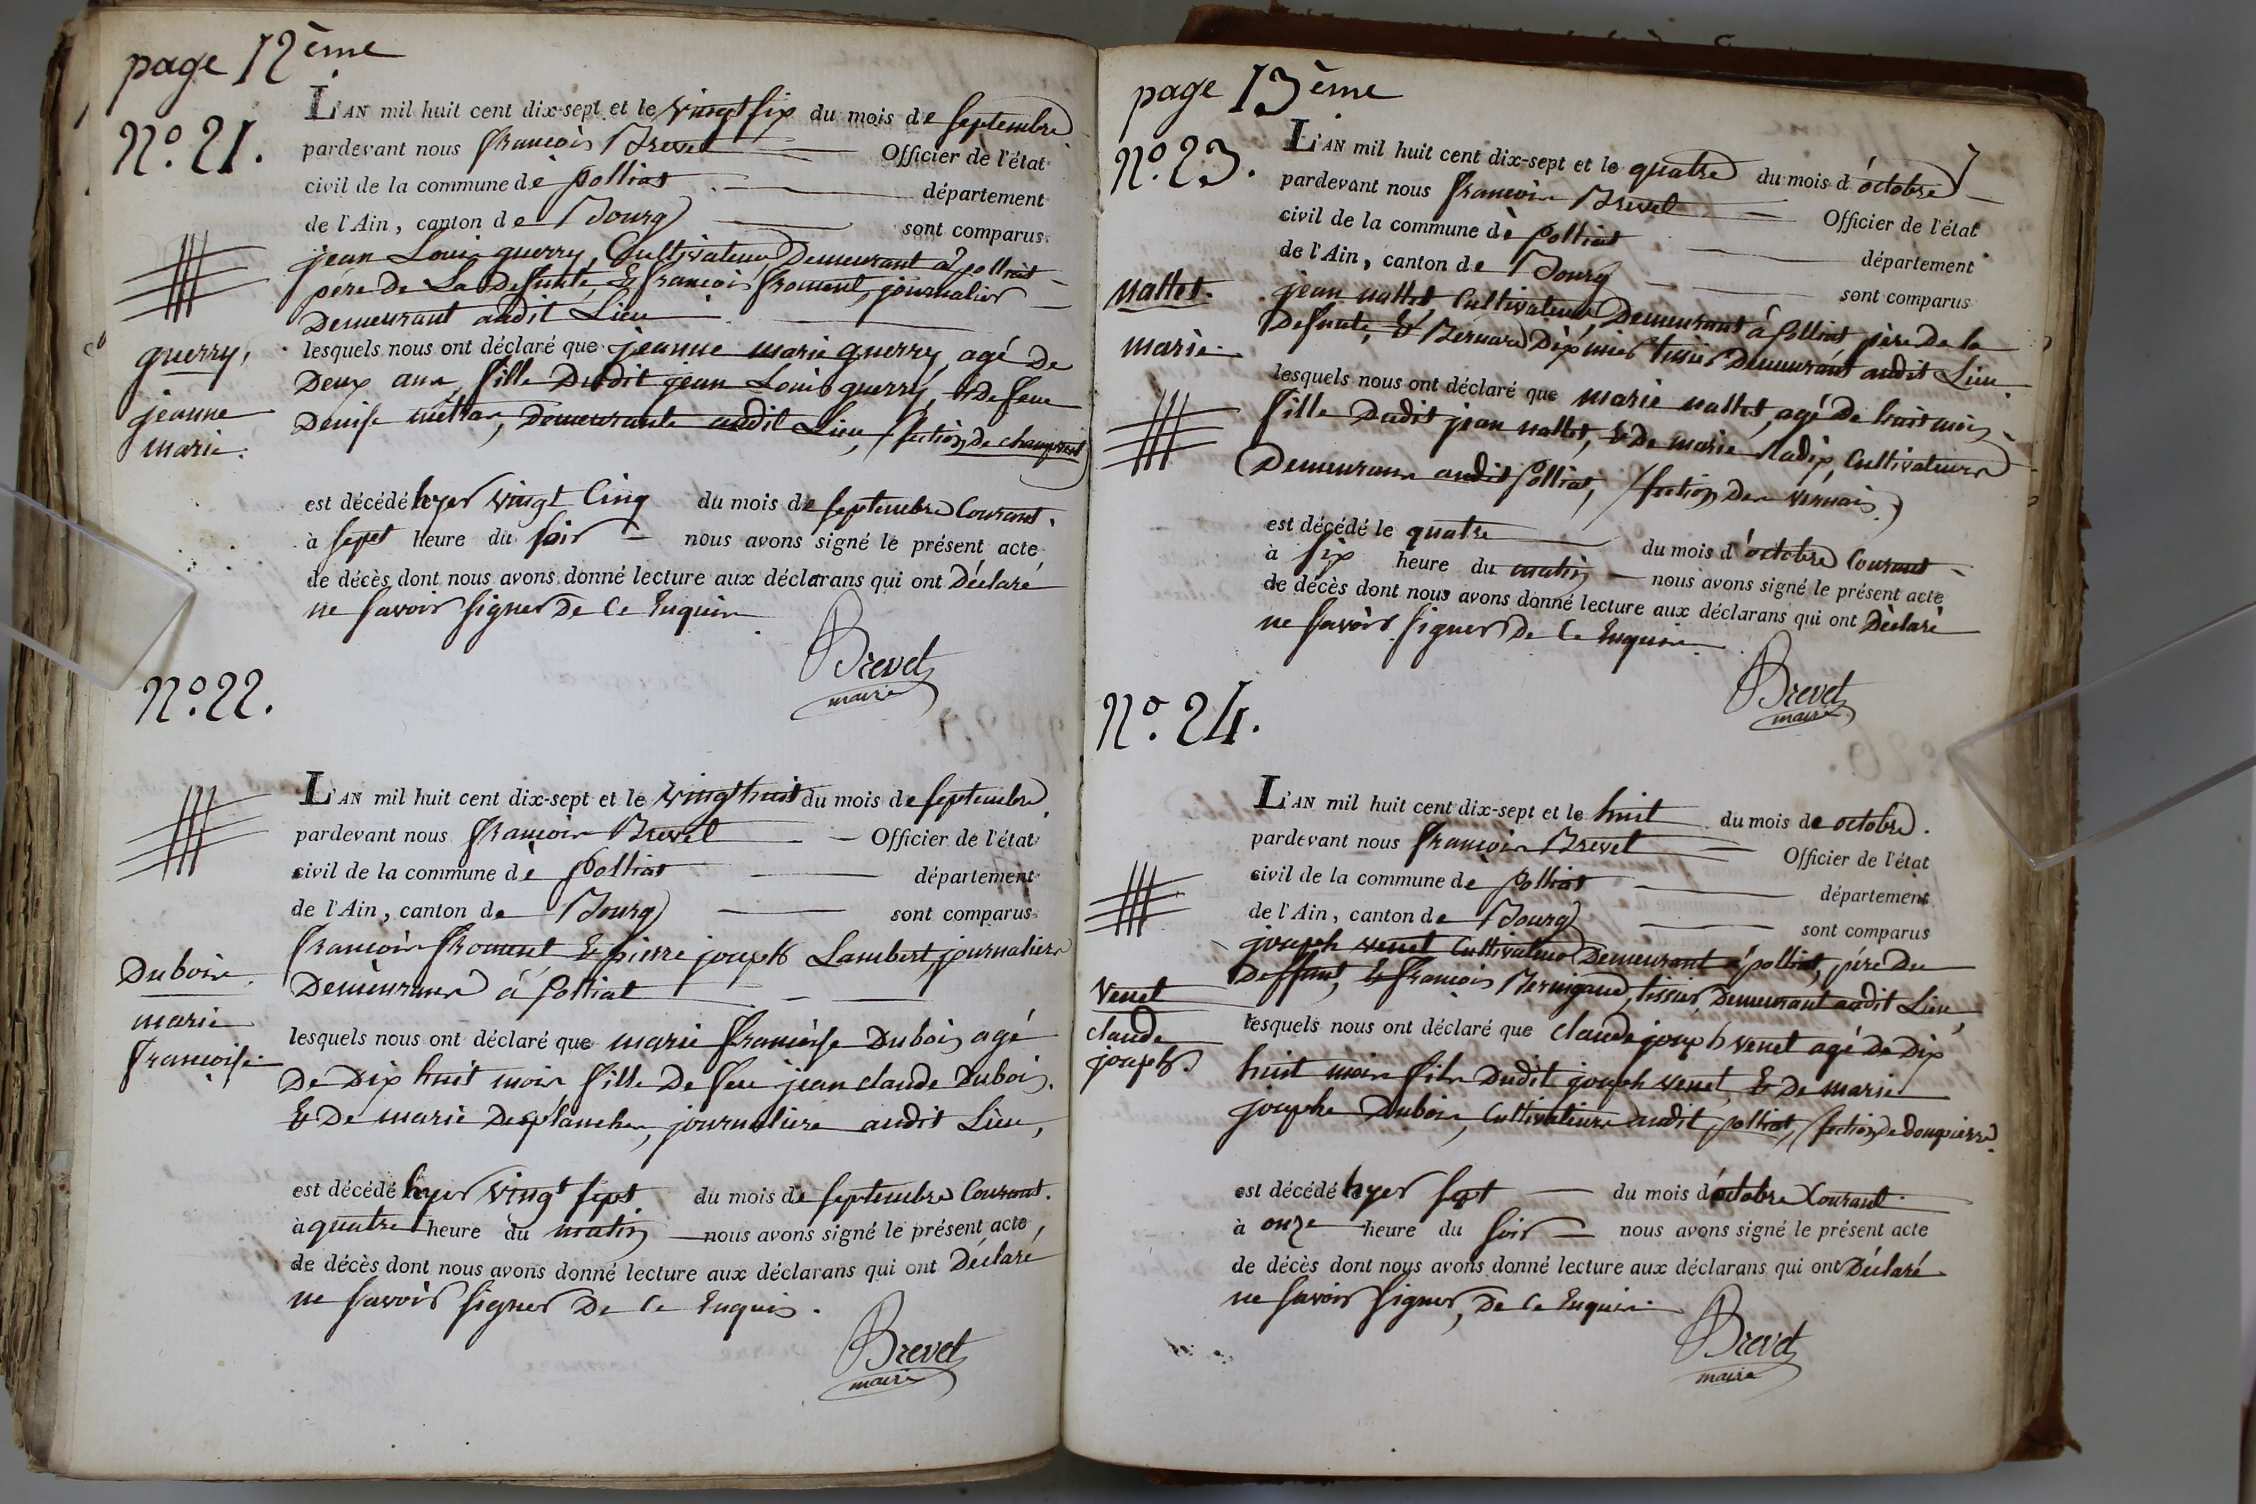 page 12ème
N.° 21.
L'AN mil huit cent dix-sept et le vingt six du mois de septembre
pardevant nous françois Brevet Officier de l'état
civil de la commune de polliat département
de l'Ain, canton de Bourg sont comparus
jean Louis guerry, Cultivateur Demeurant à polliat
père De La Defunte, & francois froment, journalier
Demeurant audit Lieu
guerry,
jeanne
marie.
lesquels nous ont déclaré que jeanne marie guerry, agé De
Deux ans, fille Dudit jean Louis guerry, & De feue
Denise, Demeurante audit Lieu, section de
est décédé hyer vingt Cinq du mois de septembre Courant.
à sept heure du soir nous avons signé le présent acte
de décès dont nous avons donné lecture aux déclarans qui ont Déclaré
ne savoir signer De Ce Enquis
Brevet
maire
N.° 22.
L'AN mil huit cent dix-sept et le vingt huit du mois de septembre
pardevant nous françois Brevet Officier de l'état
civil de la commune de polliat département
de l'Ain, canton de Bourg sont comparus
francois froment & pierre joseph Lambert, journaliers
Demeurans à polliat
Dubois
marie
francoise.
lesquels nous ont déclaré que marie francoise Dubois agé
De Dix huit mois fille De feu jean claude Dubois.
& De marie Desplanches, journaliere audit Lieu,
est décédé hyer vingt sept du mois de septembre Courant.
à quatre heure du matin nous avons signé le présent acte
de décès dont nous avons donné lecture aux déclarans qui ont Déclaré
ne savoir signer De Ce Enquis.
Brevet
maire
page 13ème
N.° 23.
L'AN mil huit cent dix-sept et le quatre du mois d'octobre
pardevant nous françois Brevet Officier de l'état
civil de la commune de polliat département
de l'Ain, canton de Bourg sont comparus
nallet.
marie.
jean nallet, Cultivateur Demeurant à polliat père De la
Defunte, & Bernard tissier Demeurant audit Lieu
lesquels nous ont déclaré que marie nallet, agé De huit mois
fille Dudit jean nallet, & De marie, Cultivateurs
Demeurans audit polliat, section Des vernais.
est décédé le quatre du mois d'octobre Courant
à six heure du matin nous avons signé le présent acte
de décès dont nous avons donné lecture aux déclarans qui ont Déclaré
ne savoir signer De Ce Enquis.
Brevet
maire
N.° 24.
L'AN mil huit cent dix-sept et le huit du mois de octobre.
pardevant nous françois Brevet Officier de l'état
civil de la commune de polliat département
de l'Ain, canton de Bourg sont comparus
joseph venet Cultivateur Demeurant à polliat, père Du
Deffunt, & francois, tissier Demeurant audit Lieu,
venet
claude
joseph.
lesquels nous ont déclaré que claude joseph venet agé De Dix
huit mois fils Dudit joseph venet, & De marie
josephe Dubois, Cultivateurs audit polliat, section De
est décédé hyer sept du mois d'octobre Courant.
à onze heure du soir nous avons signé le présent acte
de décès dont nous avons donné lecture aux déclarans qui ont Déclaré
ne savoir signer, De Ce Enquis.
Brevet
maire